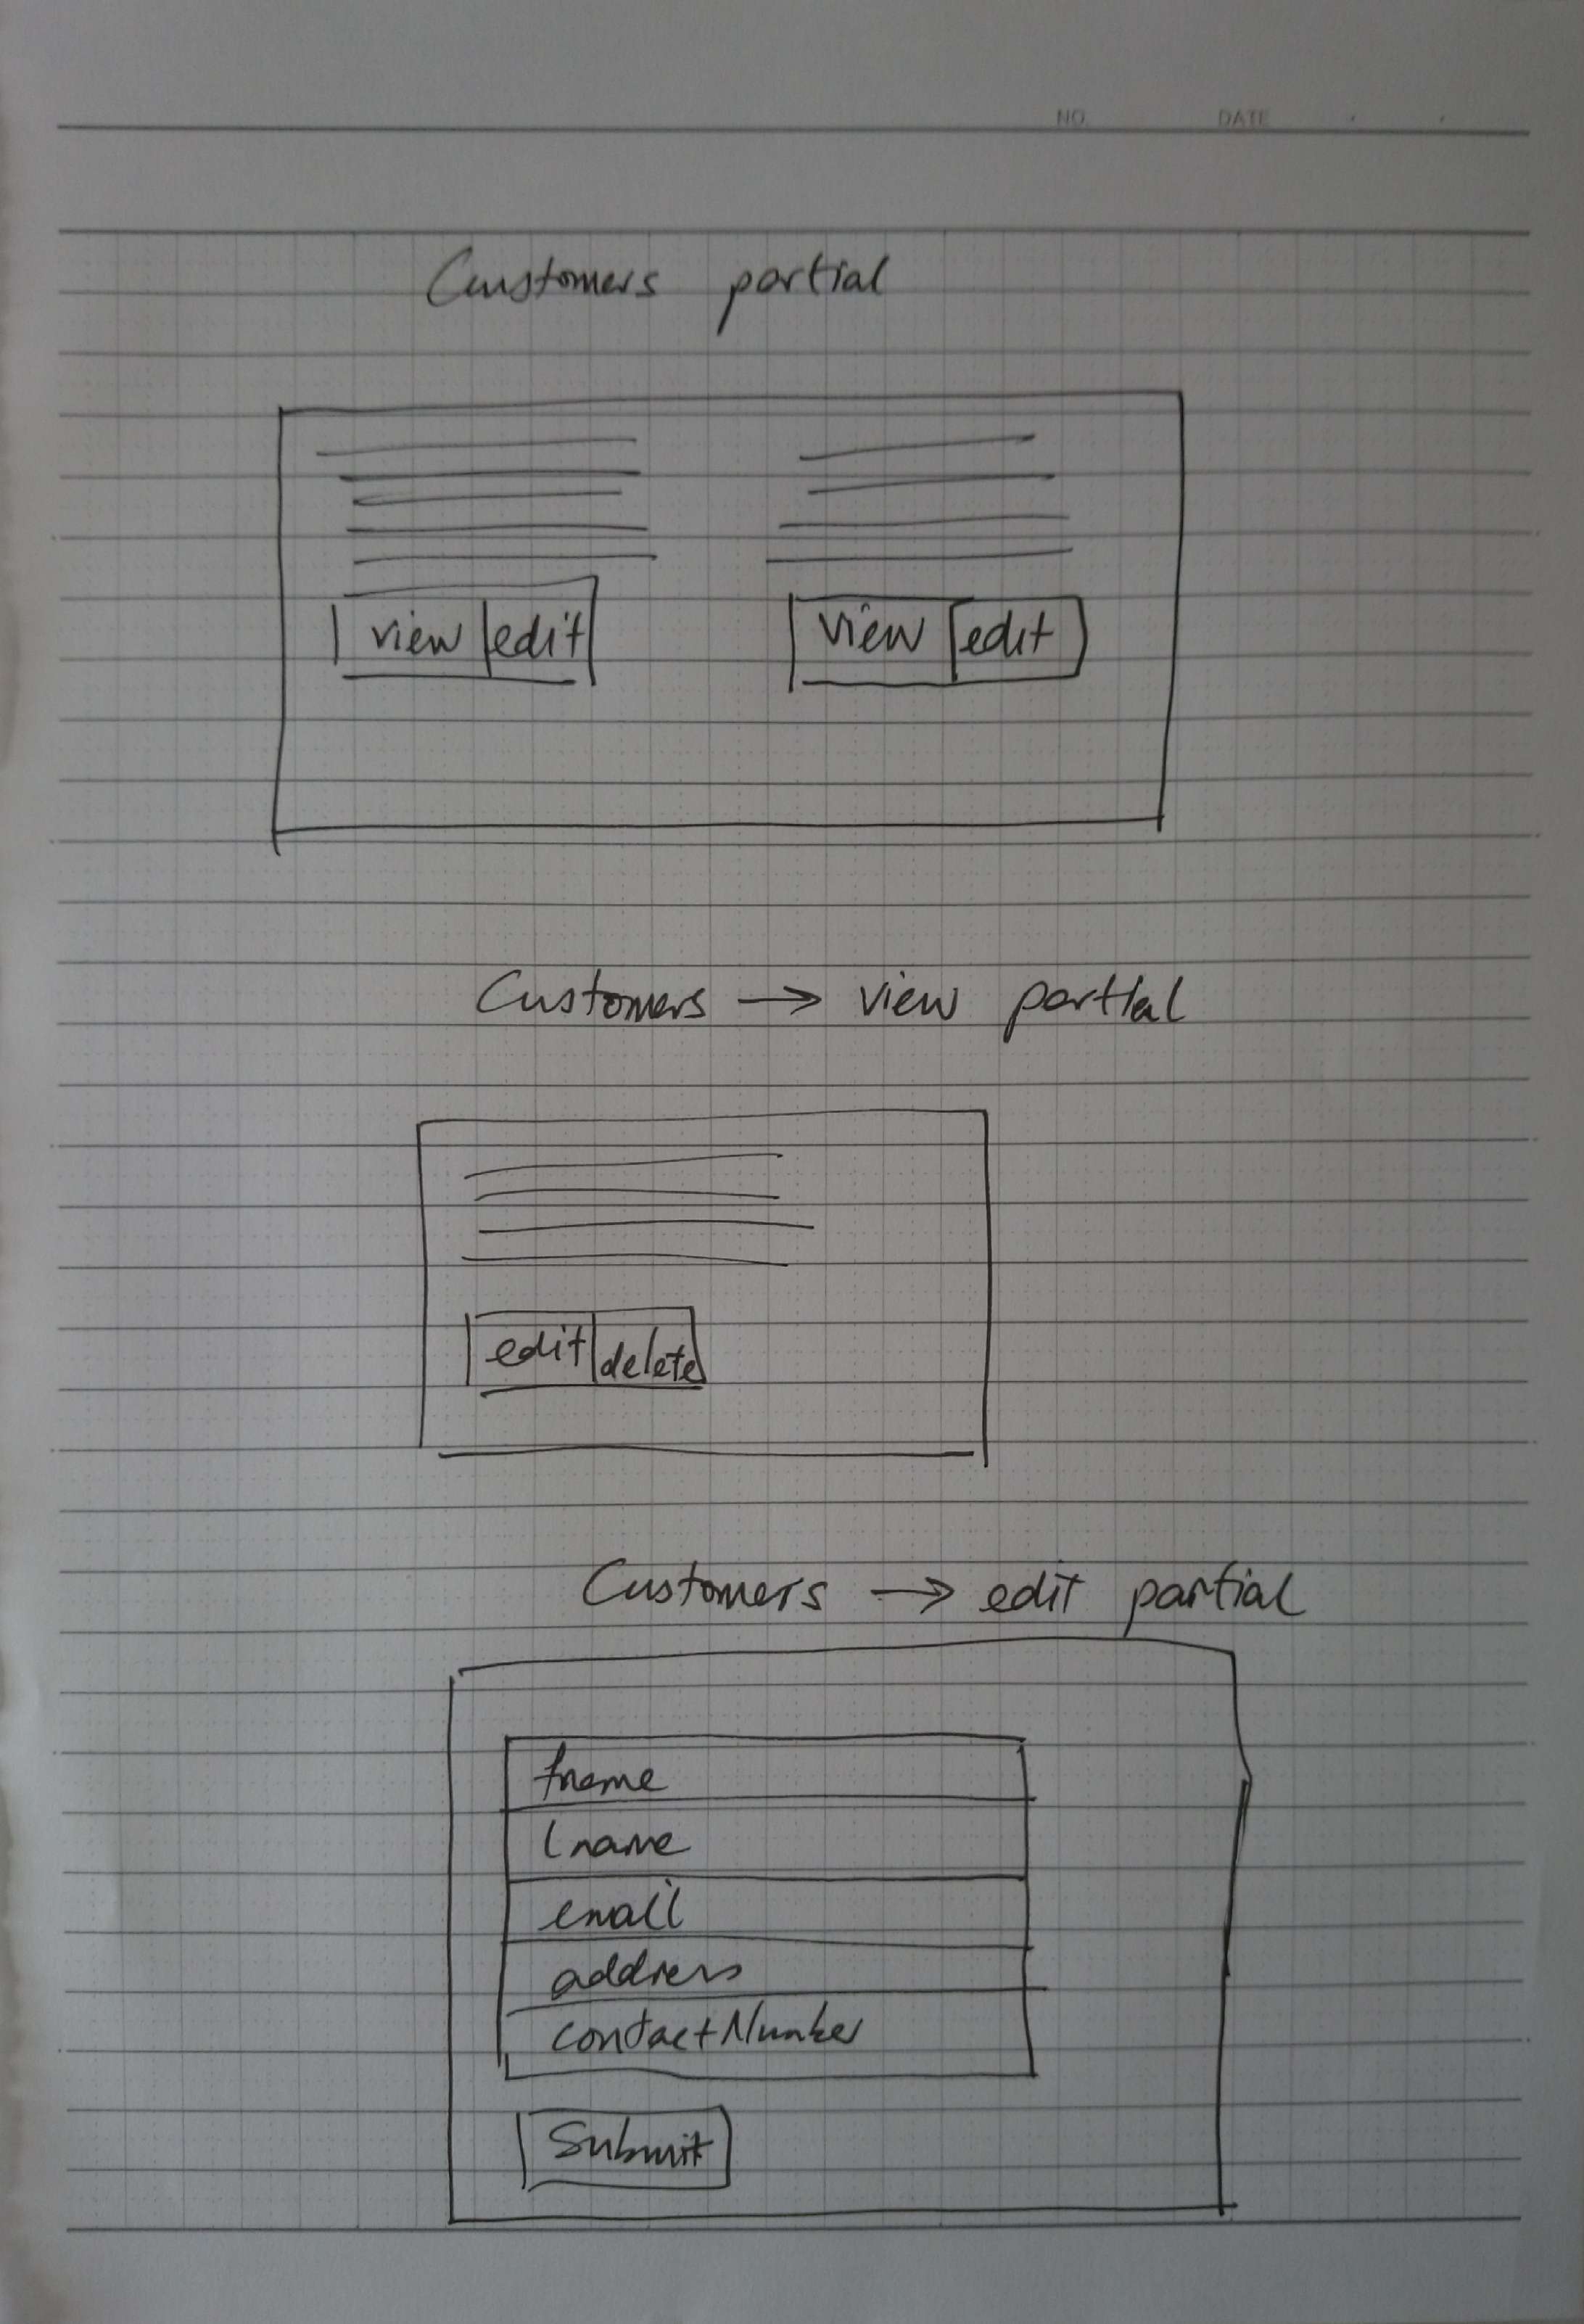 NO.
DATE
Customers partial
view edit
view edit
Customers → view partial
edit delete
Customers → edit partial
fname
lname
email
address
contactNumber
Submit